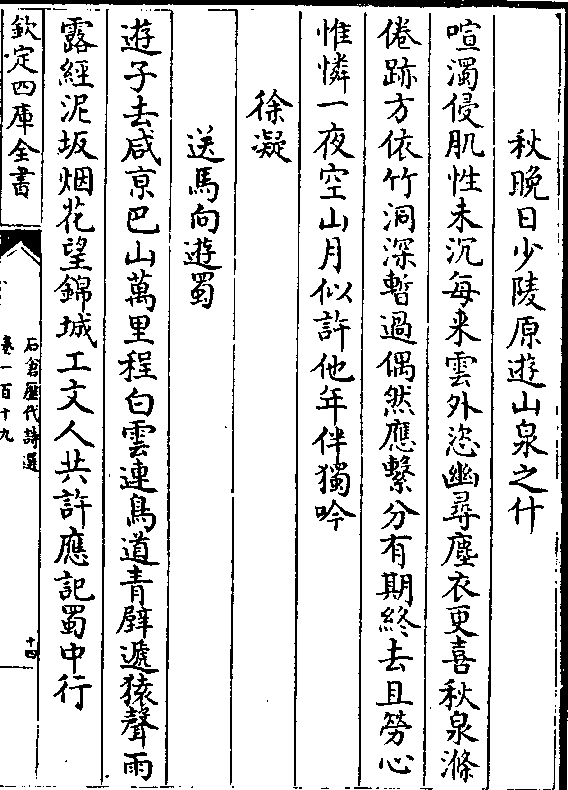 秋晩日少陵原遊山泉之什
喧濁侵肌性未沉每来雲外恣幽尋塵衣更喜秋泉滌
倦跡方依竹洞深暫過偶然應繫分有期終去且勞心
惟憐一夜空山月似許他年伴獨吟
徐凝
送馬向遊蜀
遊子去咸京巴山萬里程白雲連鳥道青壁遞猿聲雨
露經泥坂烟花望錦城工文人共許應記蜀中行
欽定四庫全書
石倉歷代詩選
卷一百十九
十四